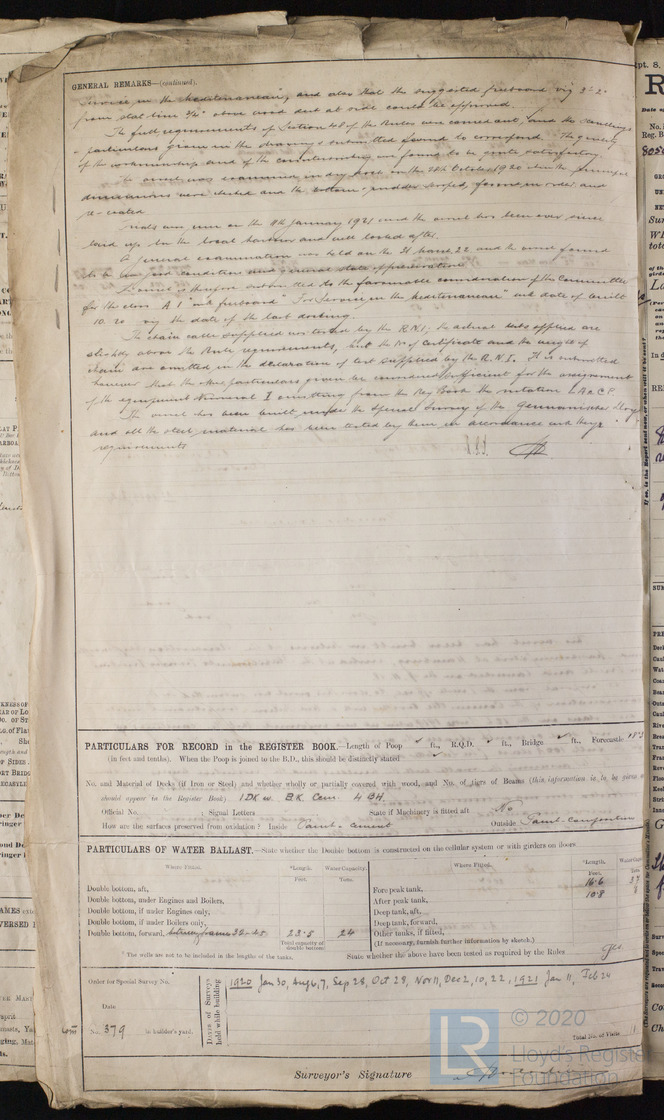 GENERAL REMARKS—(continued).
Service in the Mediterranean, and also that the suggested freeboard, viz 3'-2"
from stat line 3/4" above wood deck at side could be approved.
The full requirements of Section 48 of the Rules were carried out, and the scantlings
& particulars given in the drawings submitted found to correspond. The quality
of the workmanship and of the countersinking was found to be quite satisfactory.
The vessel was examined in dry dock on the 28th October 1920 when the principal
dimensions were checked and the bottom & rudder scraped, found in order and
re-coated.
Trials was run on the 11th January 1921 and the vessel has been ever since
laid up in the local harbour and well looked after.
A general examination was held on the 31 March 22 and the vessel found
to be in good condition and general state
It is therefore submitted to the favourable consideration of the Committee
for the class A 1 "with freeboard" "For Service in the Mediterranean" and date of built
10. 20 viz the date of the last docking.
The chain cable supplied was tested by the R.N.I; the actual tests applied are
slightly above the Rule requirements, but the No of Certificate and the weight of
chain are omitted in the declaration of test supplied by the R.N.I. It is submitted
however that the particulars given be considered sufficient for the assignment
of the equipment Numeral 1 omitting from the Reg Book the notation L.A & C.P.
The vessel has been built under the Special Survey of the Germanischer Lloyd
and all the steel material has been tested by them in accordance with their
requirements
PARTICULARS FOR RECORD in the REGISTER BOOK.—Length of Poop ft., R.Q.D. ft., Bridge ft., Forecastle
(in feet and tenths). When the Poop is joined to the B.D., this should be distinctly stated
No. and Material of Decks (if Iron or Steel) and whether wholly or partially covered with wood, and No. of tiers of Beams (this information is to be given as
should appear in the Register Book) 1 DK w. B.K. Cem 4 BH.
Official No. Signal Letters State if Machinery is fitted aft No
How are the surfaces preserved from oxidation? Inside Paint - cement Outside Paint-composition
PARTICULARS OF WATER BALLAST.—State whether the Double bottom is constructed on the cellular system or with girders on floors
Where Fitted. *Length. Water Capacity. Where Fitted. *Length. Water Capacity
Feet. Tons. Feet. Tons
Double bottom, aft, Fore peak tank, 16.6 37
Double bottom, under Engines and Boilers, After peak tank, 10.8 8
Double bottom, if under Engines only, Deep tank, aft,
Double bottom, if under Boilers only, Deep tank, forward,
Double bottom, forward, between frames 32-45 23.5 24 Other tanks, if fitted,
Total capacity of double bottom (If necessary, furnish further information by sketch.)
* The wells are not to be included in the lengths of the tanks. State whether the above have been tested as required by the Rules yes
Order for Special Survey No.
Date
No. 379 in builder's yard.
Dates of Surveys held while building
1920 Jan 30, Aug 6, 7, Sep 28, Oct 28, Nov 11, Dec 2, 10, 22, 1921 Jan 11, Feb 24
Total No. of Visits 11
Surveyor's Signature
LR
© 2020
Lloyd's Register
Foundation